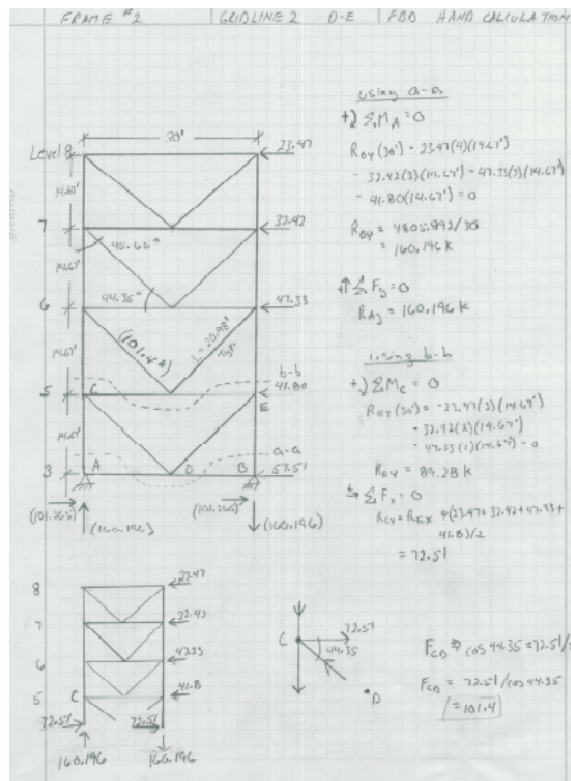 FRAME #2 GRIDLINE 2 D-E FBD HAND CALCULATION
30'
Level 8
23.47
14.67'
7
32.42
45.65°
14.67'
44.35°
6
47.33
(101.4 k)
L=20.98'
14.67'
b-b
5
C
41.80
E
14.67'
a-a
3
A
D
B
57.51
(101.265)
(101.265)
(160.196)
(160.196)
using a-a
+ ΣM A = 0
R BY (30') - 23.47(4)(14.67')
- 32.42(3)(14.67') - 47.33(2)(14.67')
- 41.80(14.67') = 0
R BY = 4805.892/30
= 160.196 k
+ ΣF y = 0
R Ay = 160.196 k
using b-b
+ ΣM C = 0
R EY (30') = -23.47(3)(14.67')
- 32.42(2)(14.67')
- 47.33(1)(14.67') = 0
R EY = 89.28 k
+ ΣF x = 0
R CX = R EX = (23.47+32.42+47.33+
41.8)/2
= 72.51
8
23.47
7
32.42
6
47.33
5
C
41.8
72.51
72.51
160.196
160.196
C
72.51
44.35
D
F CD ⇒ cos 44.35 = 72.51/
F CD = 72.51/cos 44.35
= 101.4